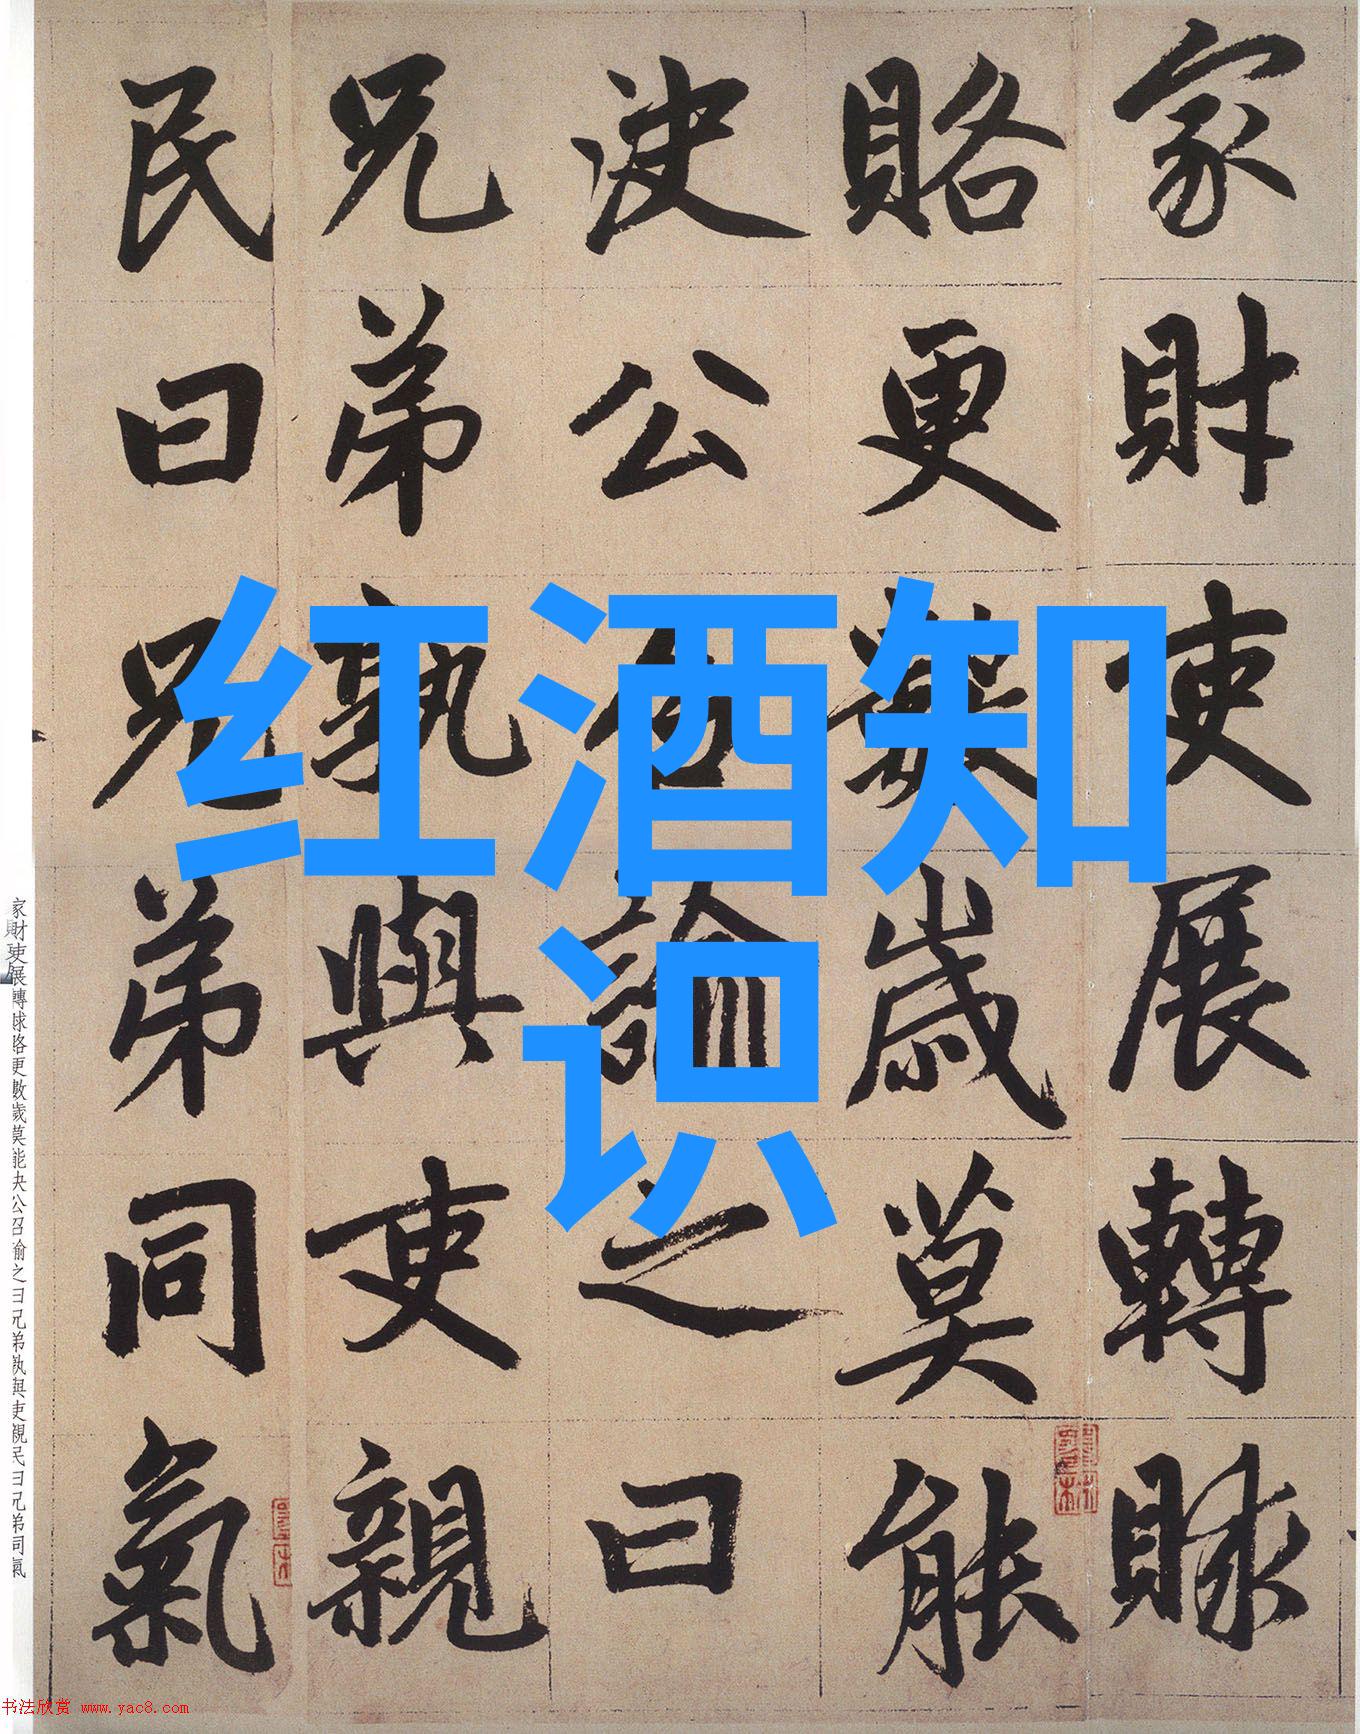 家財吏展轉賕
賂更數歲莫能
決公召諭之曰
兄弟孰與吏親
民曰兄弟同氣
红酒知
识
家財吏展轉賕賂更數歲莫能決公召諭之曰兄弟孰與吏親民曰兄弟同氣
书法欣赏 www.yac8.com